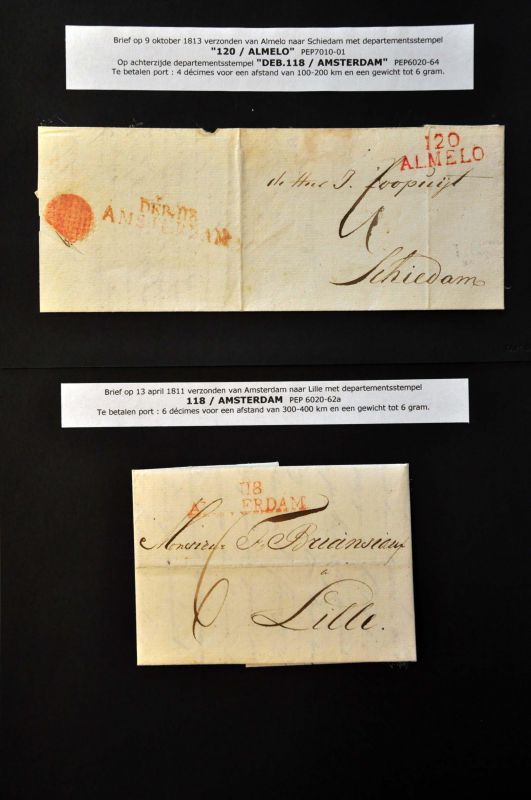 Brief op 9 oktober 1813 verzonden van Almelo naar Schiedam met departementsstempel
"120 / ALMELO" PEP7010-01
Op achterzijde departementsstempel "DEB.118 / AMSTERDAM" PEP6020-64
Te betalen port : 4 décimes voor een afstand van 100-200 km en een gewicht tot 6 gram.
120
ALMELO
DEB.118
AMSTERDAM
de Heer J.
4
Schiedam
Brief op 13 april 1811 verzonden van Amsterdam naar Lille met departementsstempel
118 / AMSTERDAM PEP 6020-62a
Te betalen port : 6 décimes voor een afstand van 300-400 km en een gewicht tot 6 gram.
118
A ERDAM
Monsieur F. Briansiaux
à
6
Lille.